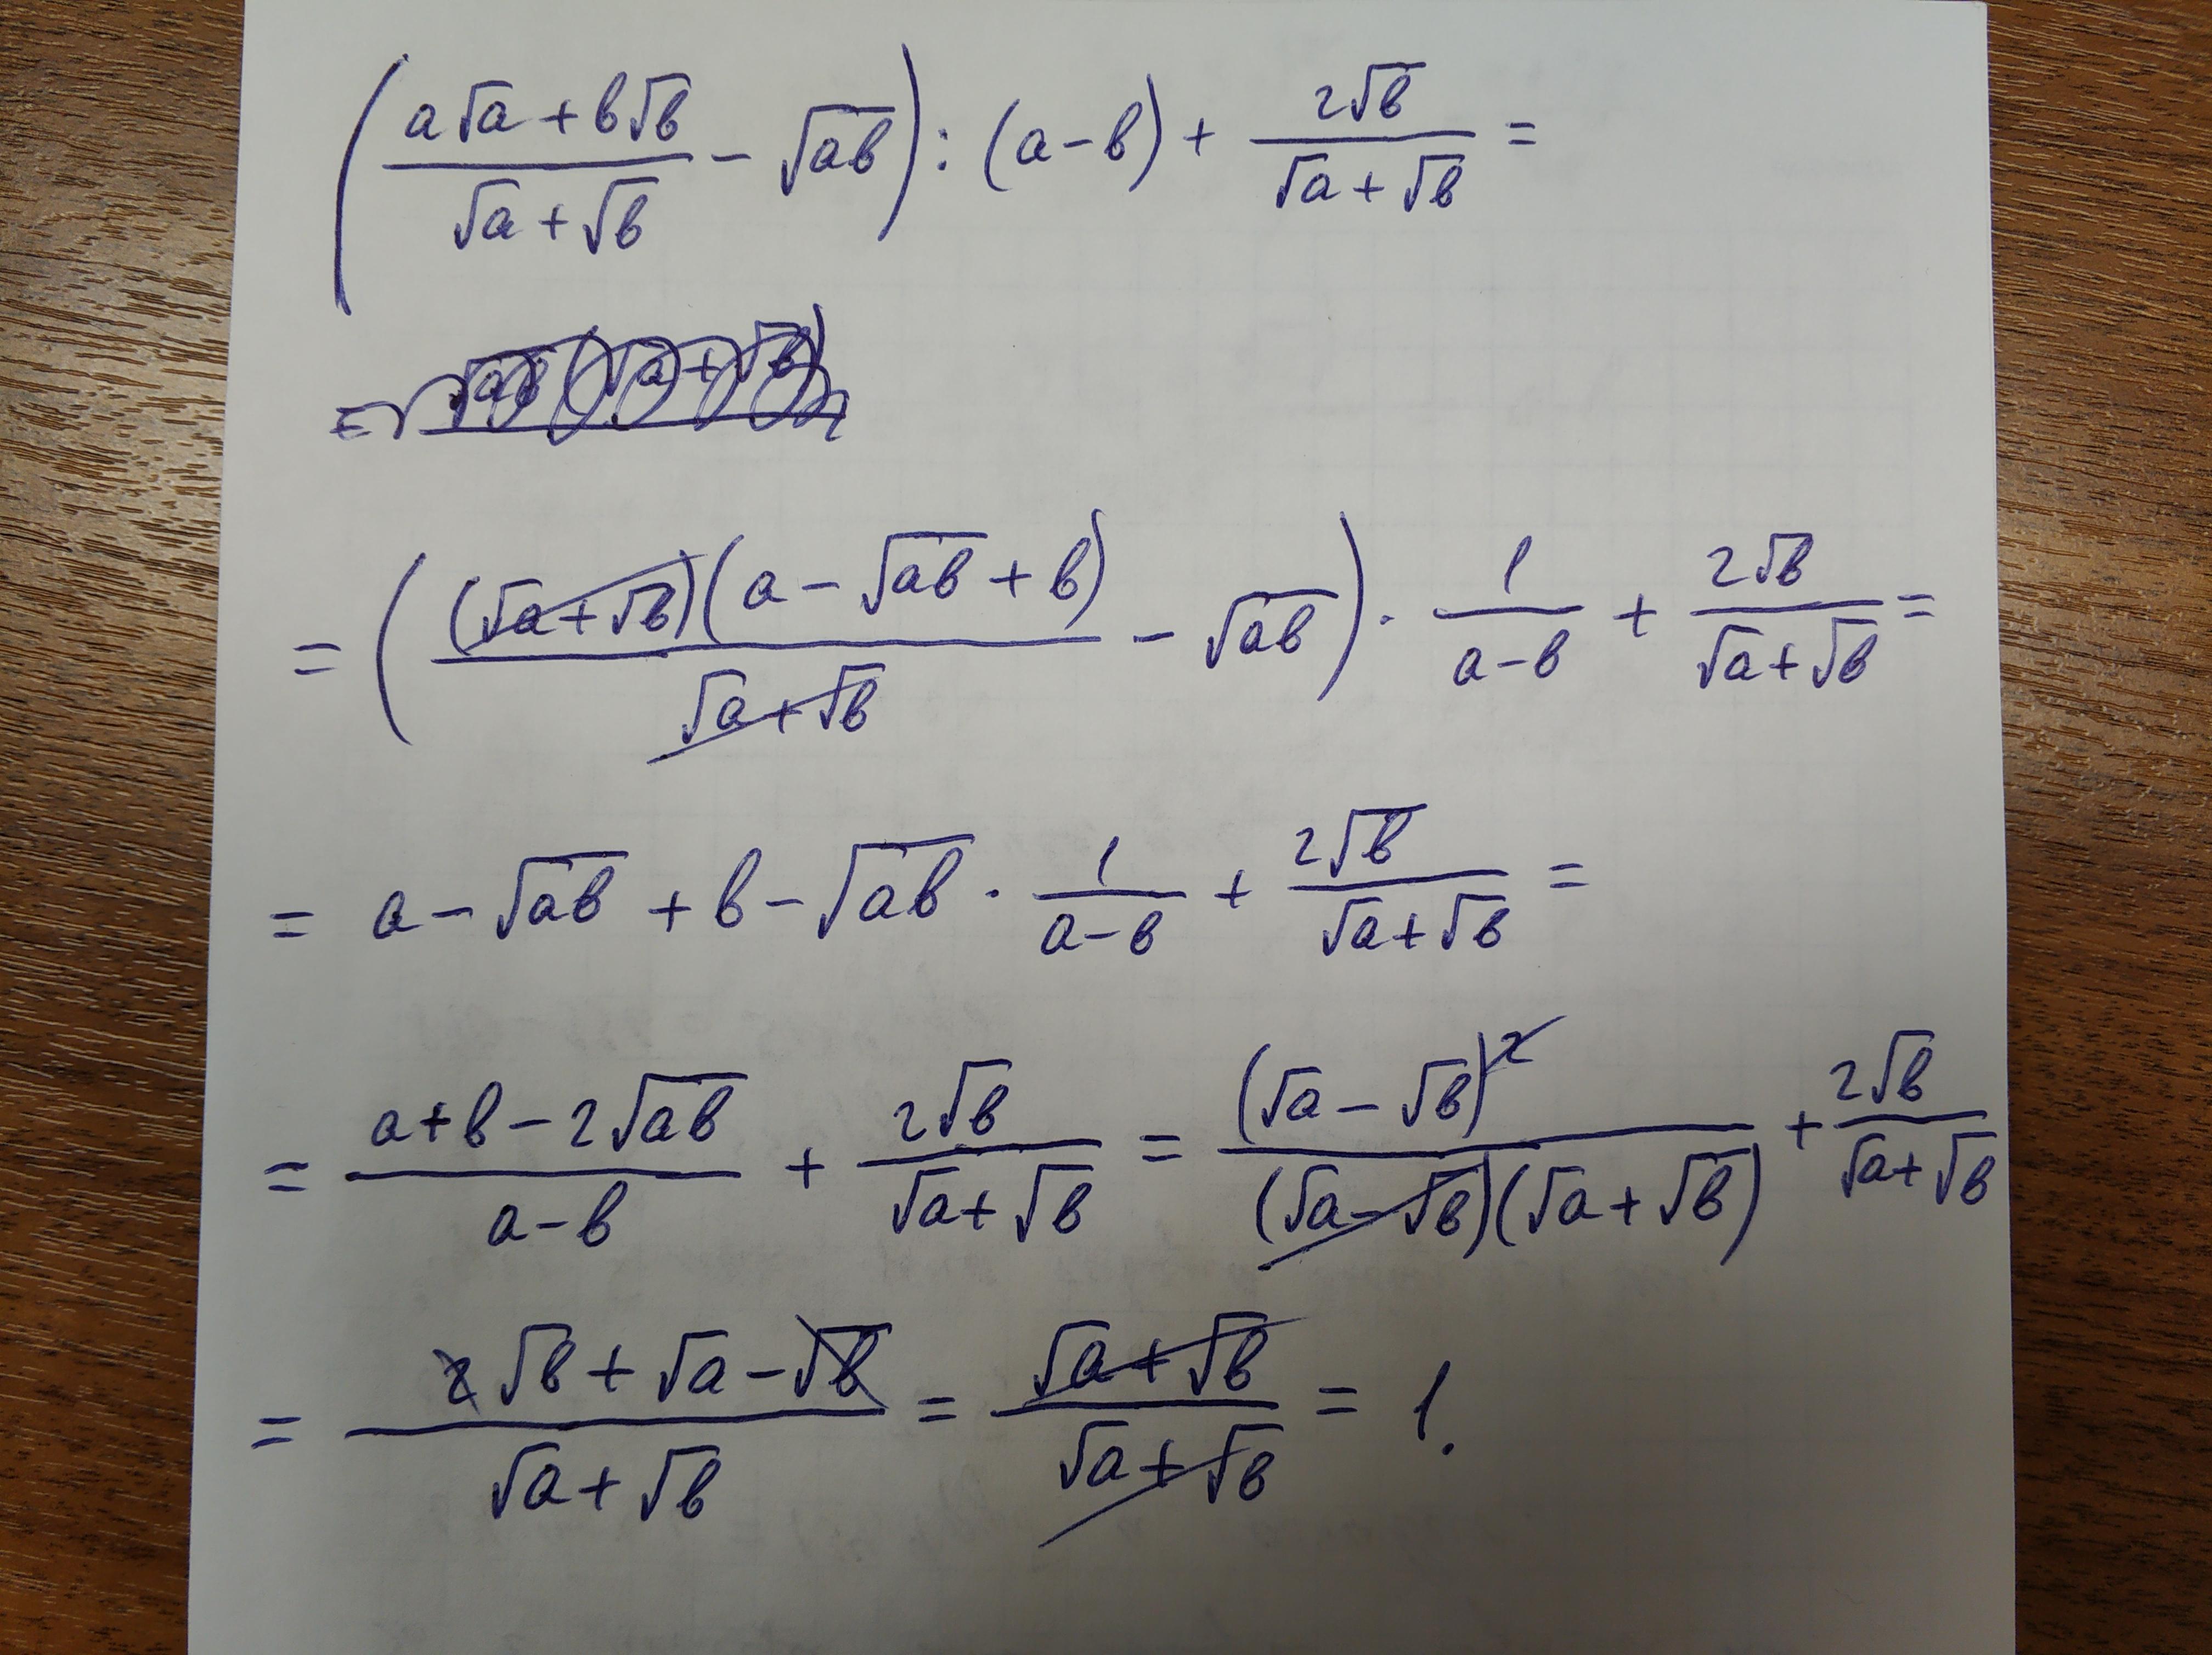 (a√a + b√b / √a + √b − √ab) : (a − b) + 2√b / √a + √b =
= √ab (√a + √b)
= ((√a + √b)(a − √ab + b) / √a + √b − √ab) · 1 / a − b + 2√b / √a + √b =
= a − √ab + b − √ab · 1 / a − b + 2√b / √a + √b =
= a + b − 2√ab / a − b + 2√b / √a + √b = (√a − √b)² / (√a − √b)(√a + √b) + 2√b / √a + √b
= 2√b + √a − √b / √a + √b = √a + √b / √a + √b = 1.